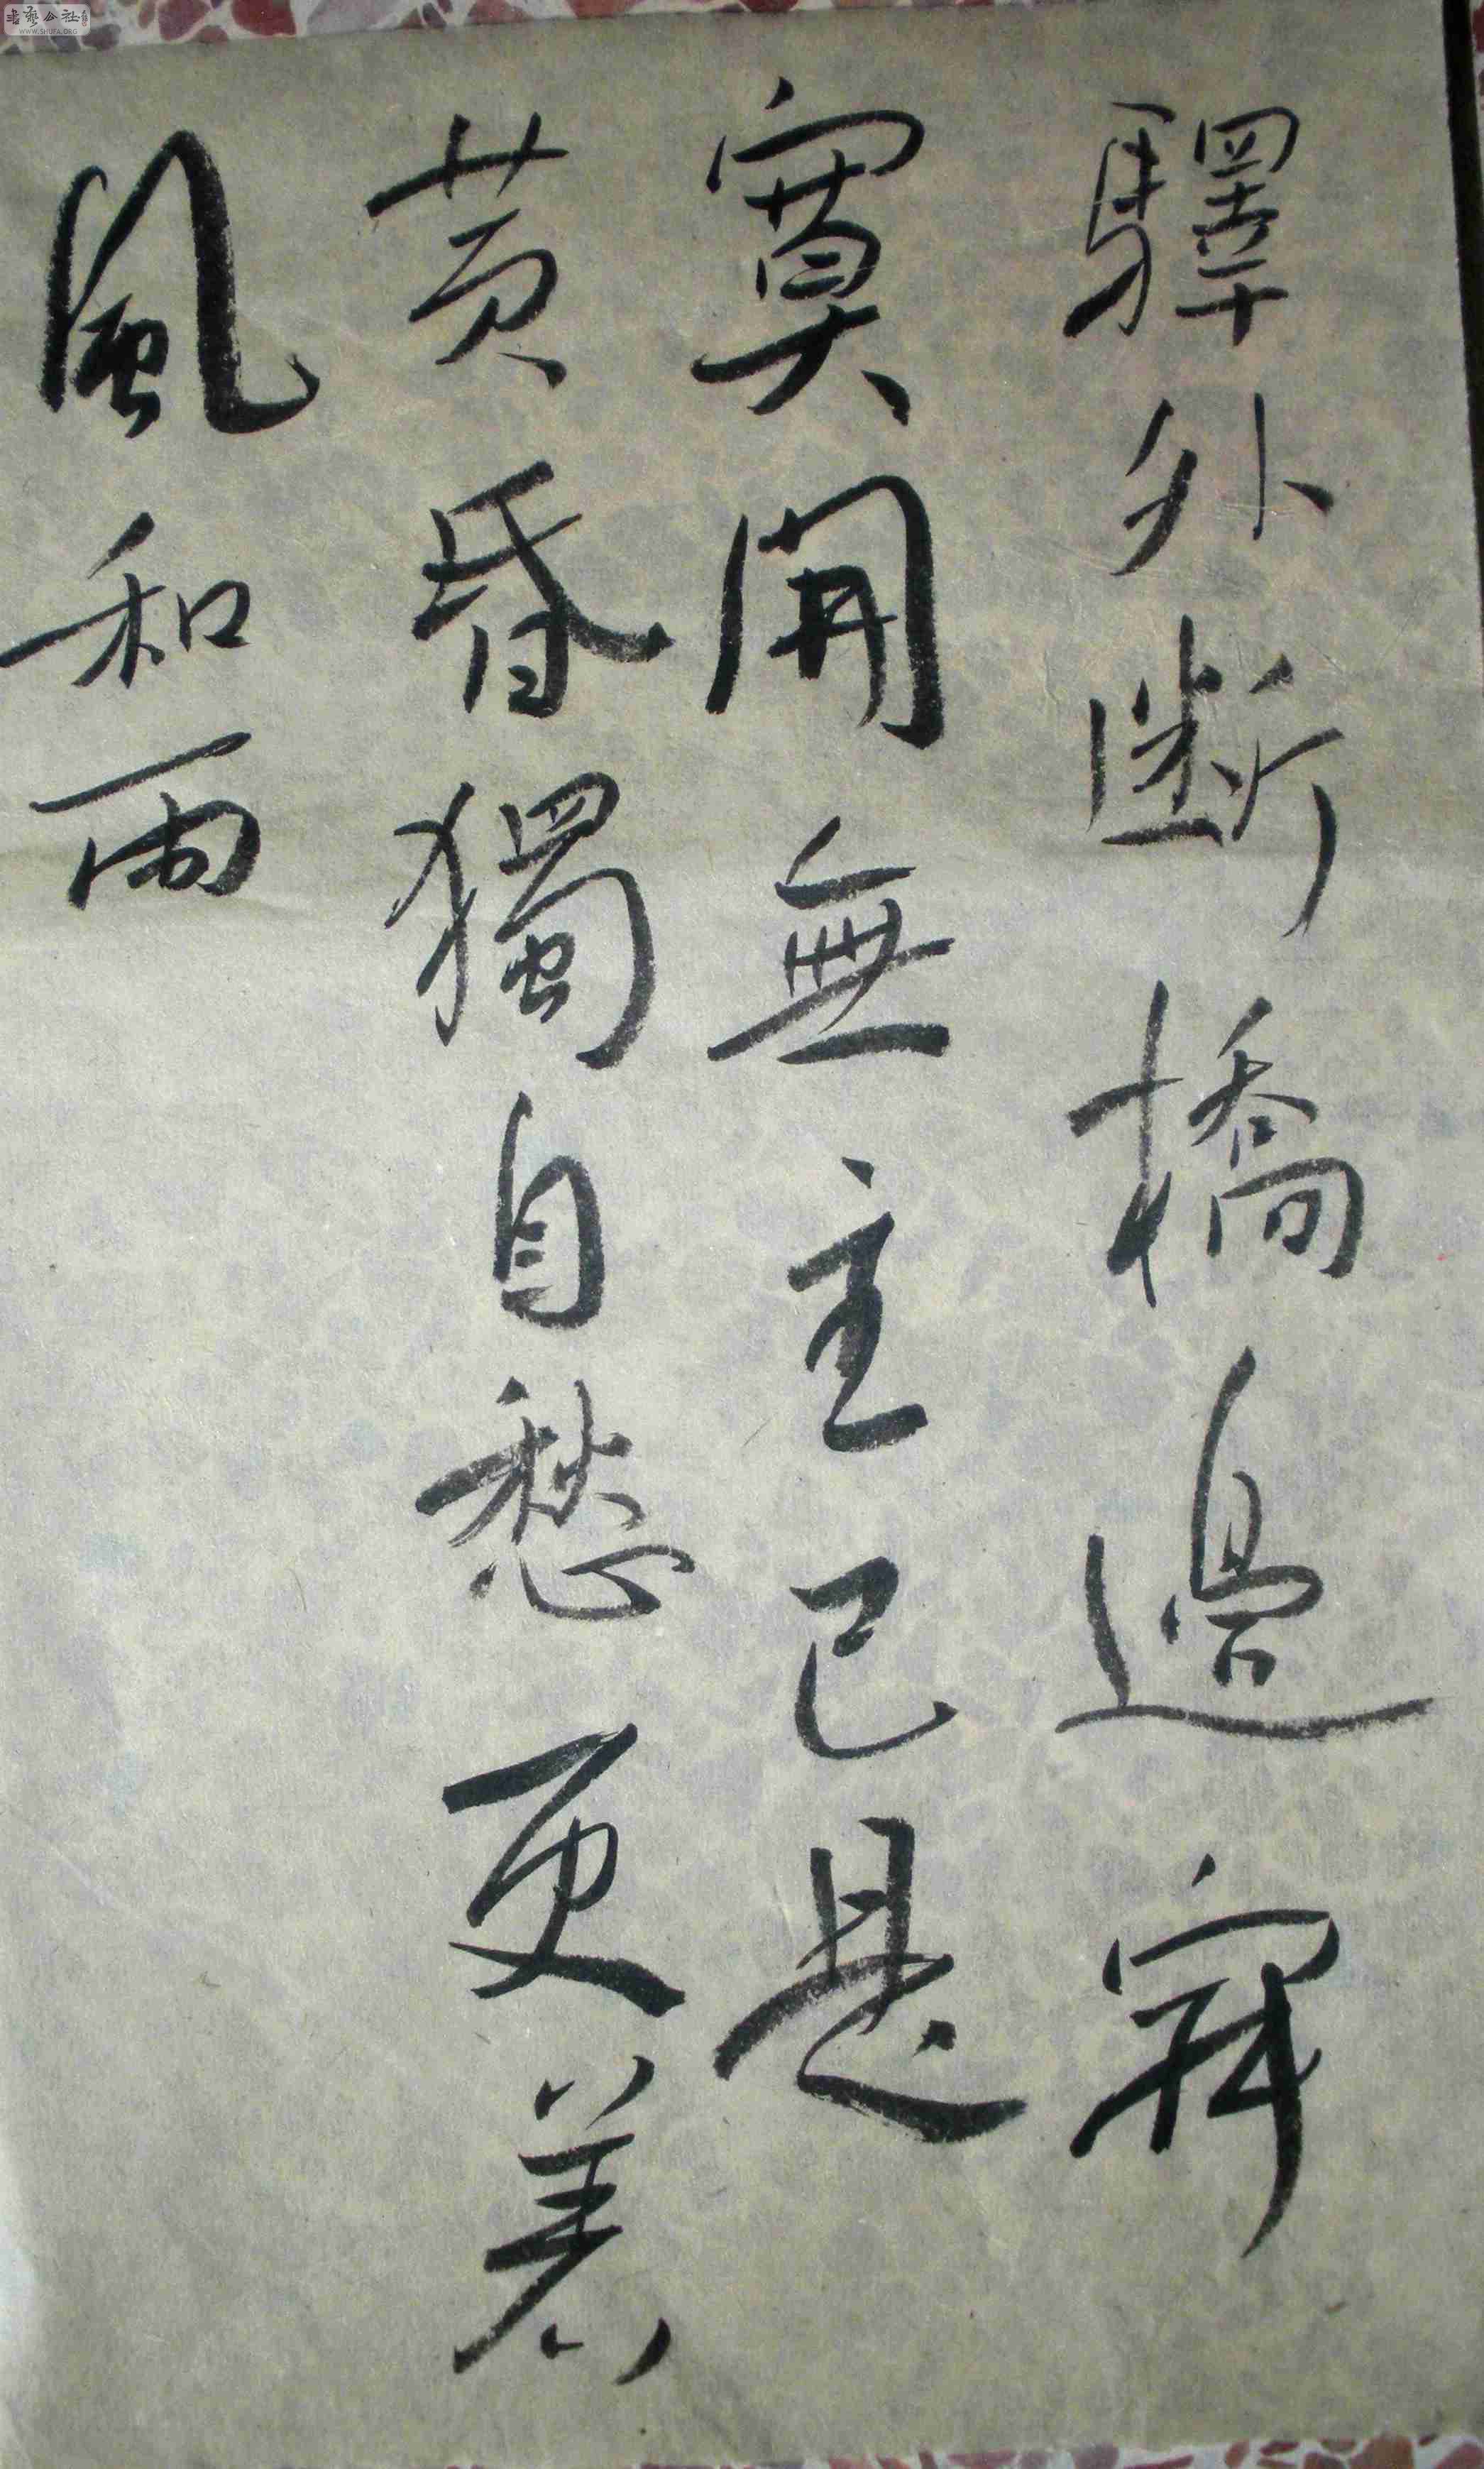 驛外斷橋邊寂
寞開無主已是
黄昏獨自愁更着
風和雨
WWW.SHUFA.ORG